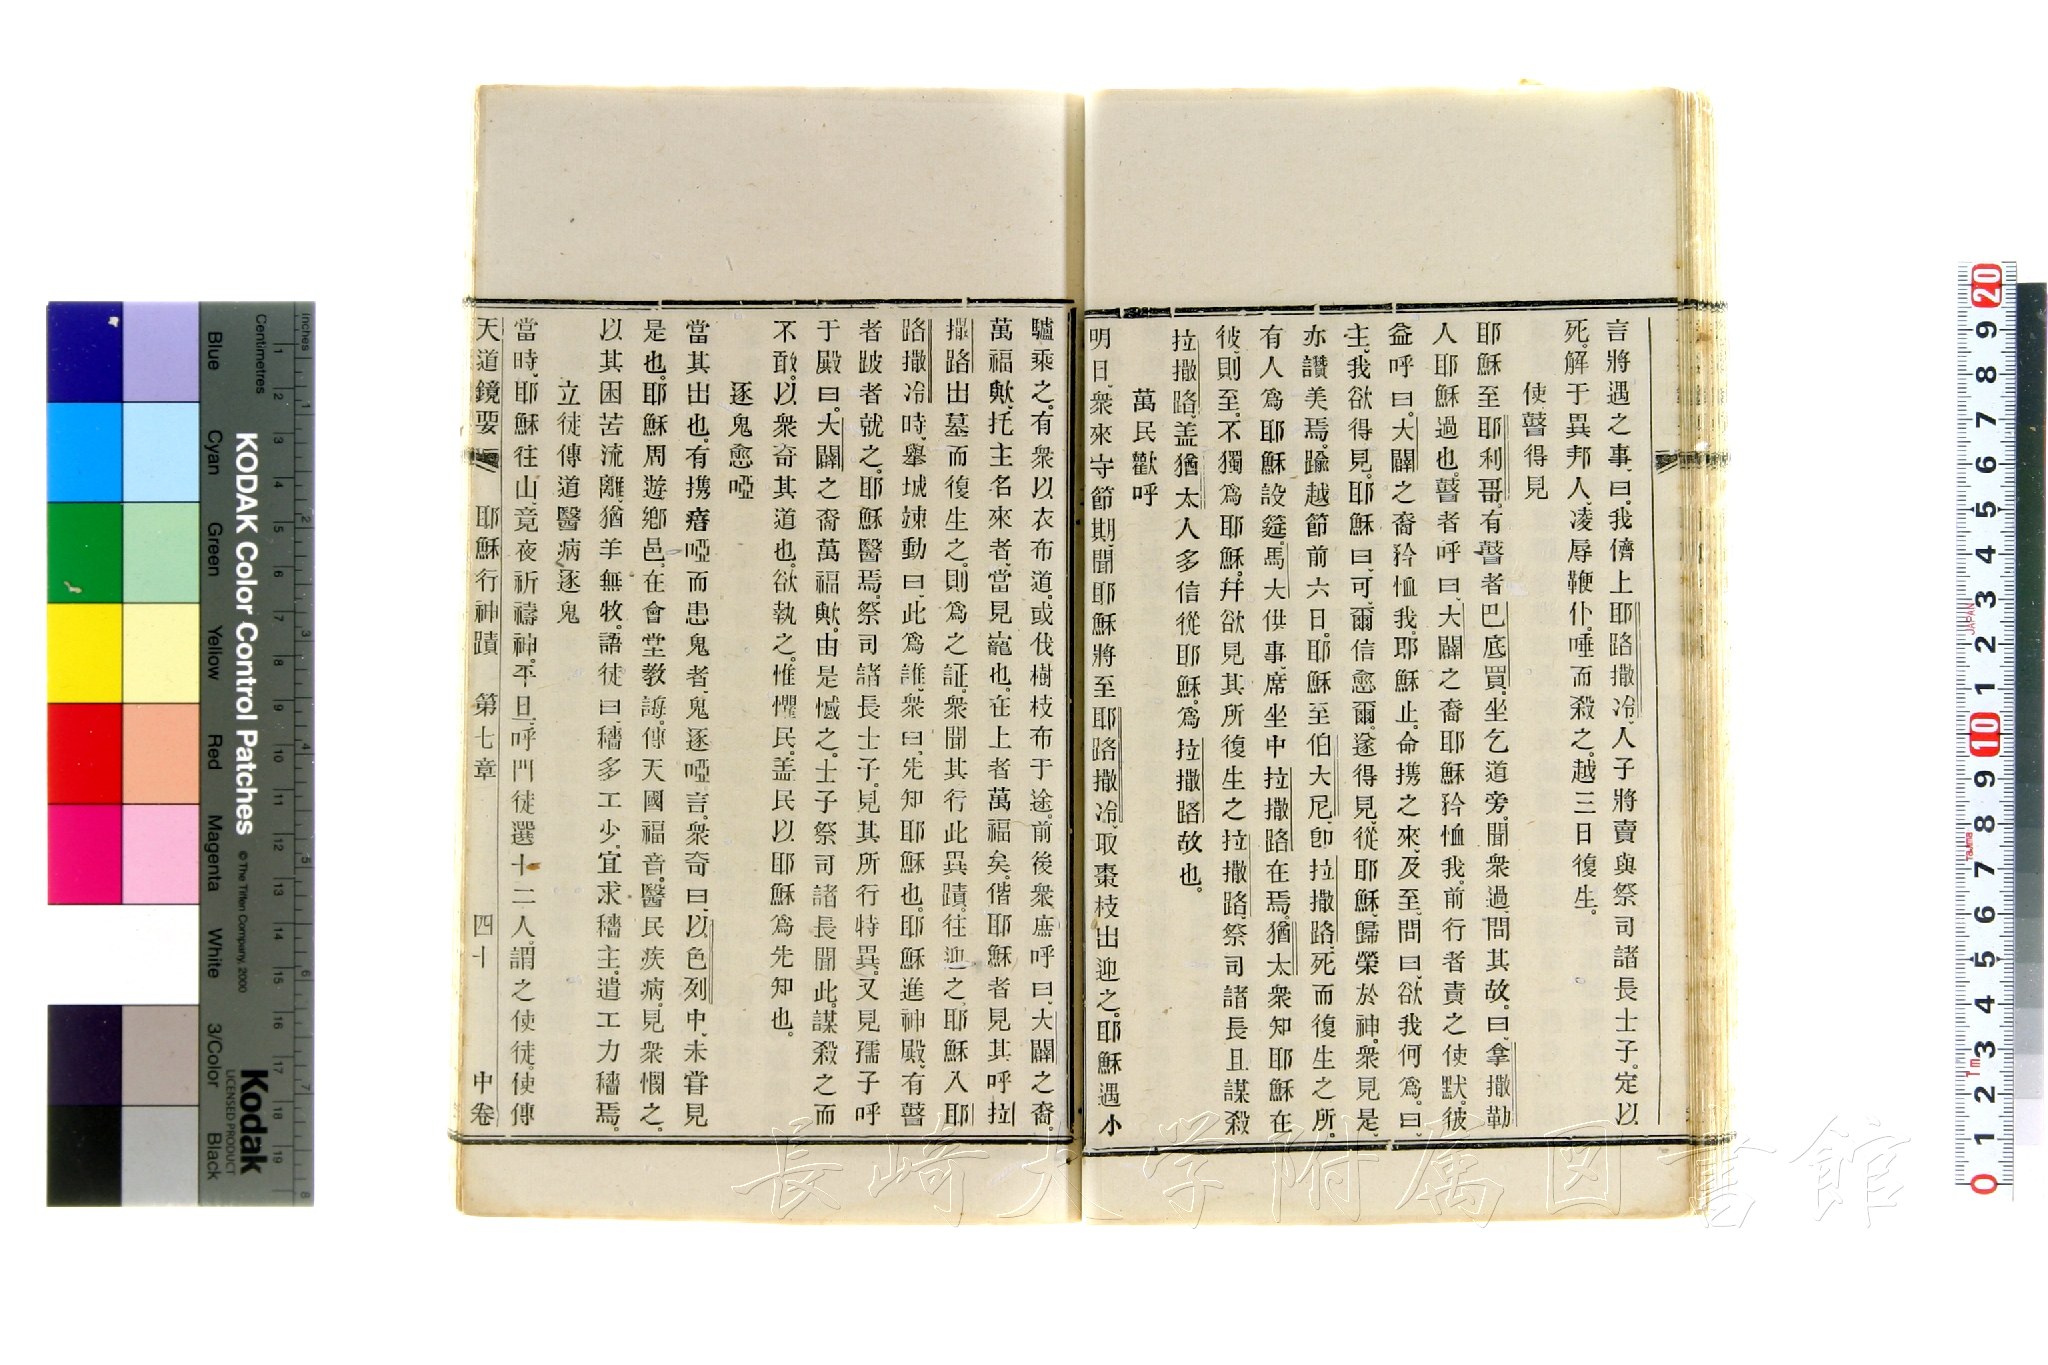 言將遇之事、曰、我儕上耶路撒冷、人子將賣與祭司諸長士子。定以
死。解于異邦人、凌辱鞭仆。唾而殺之。越三日復生。
使瞽得見
耶穌至耶利哥。有瞽者巴底買。坐乞道旁。聞衆過、問其故。曰、拿撒勒
人耶穌過也。瞽者呼曰、大闢之裔耶穌矜恤我。前行者責之使默。彼
益呼曰、大闢之裔矜恤我。耶穌止。命携之來、及至、問曰、欲我何爲。曰、
主、我欲得見。耶穌曰、可、爾信愈爾。遂得見、從耶穌、歸榮於神。衆見是、
亦讚美焉。踰越節前六日。耶穌至伯大尼、卽拉撒路、死而復生之所。
有人爲耶穌設筵。馬大供事、席坐中拉撒路在焉。猶太衆知耶穌在
彼、則至。不獨爲耶穌。幷欲見其所復生之拉撒路。祭司諸長且謀殺
拉撒路、盖猶太人多信從耶穌。爲拉撒路故也。
萬民歡呼
明日、衆來守節期、聞耶穌將至耶路撒冷、取棗枝出迎之。耶穌遇小
驢乘之。有衆以衣布道。或伐樹枝布于途。前後衆庶呼曰、大闢之裔。
萬福歟、托主名來者、當見寵也。在上者萬福矣。偕耶穌者見其呼拉
撒路出墓而復生之。則爲之証。衆聞其行此異蹟。往迎之、耶穌入耶
路撒冷時、擧城竦動曰、此爲誰、衆曰、先知耶穌也。耶穌進神殿、有瞽
者跛者就之。耶穌醫焉。祭司諸長士子。見其所行特異。又見孺子呼
于殿曰、大闢之裔萬福歟。由是憾之。士子祭司諸長聞此。謀殺之而
不敢。以衆奇其道也。欲執之。惟懼民。盖民以耶穌爲先知也。
逐鬼愈啞
當其出也。有携瘖啞而患鬼者、鬼逐啞言。衆奇曰、以色列中、未甞見
是也。耶穌周遊鄕邑。在會堂教誨。傳天國福音。醫民疾病。見衆憫之。
以其困苦流離、猶羊無牧。語徒曰、穡多工少、宜求穡主。遣工力穡焉。
立徒傳道醫病逐鬼
當時、耶穌往山、竟夜祈禱神。平旦、呼門徒選十二人。謂之使徒。使傳
天道鏡要 耶穌行神蹟 第七章 四十 中卷
長崎大学附属図書館
KODAK Color Control Patches
© The Tiffen Company, 2000
Kodak
LICENSED PRODUCT
Inches
Centimetres
Blue Cyan Green Yellow Red Magenta White 3/Color Black